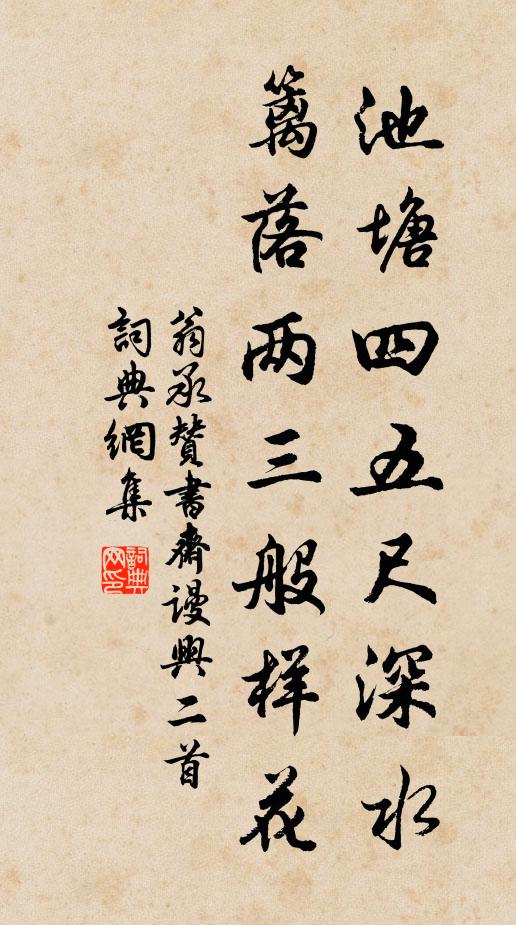 池塘四五尺深水
篱落两三般样花
翁承赞書齋謾興二首
詞典網集
詞典
网印